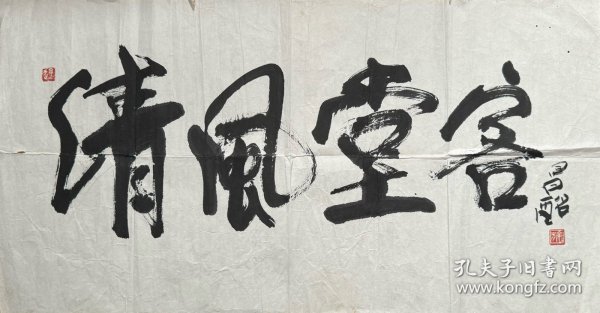 清風堂客
孔夫子旧书网
www.kongfz.com